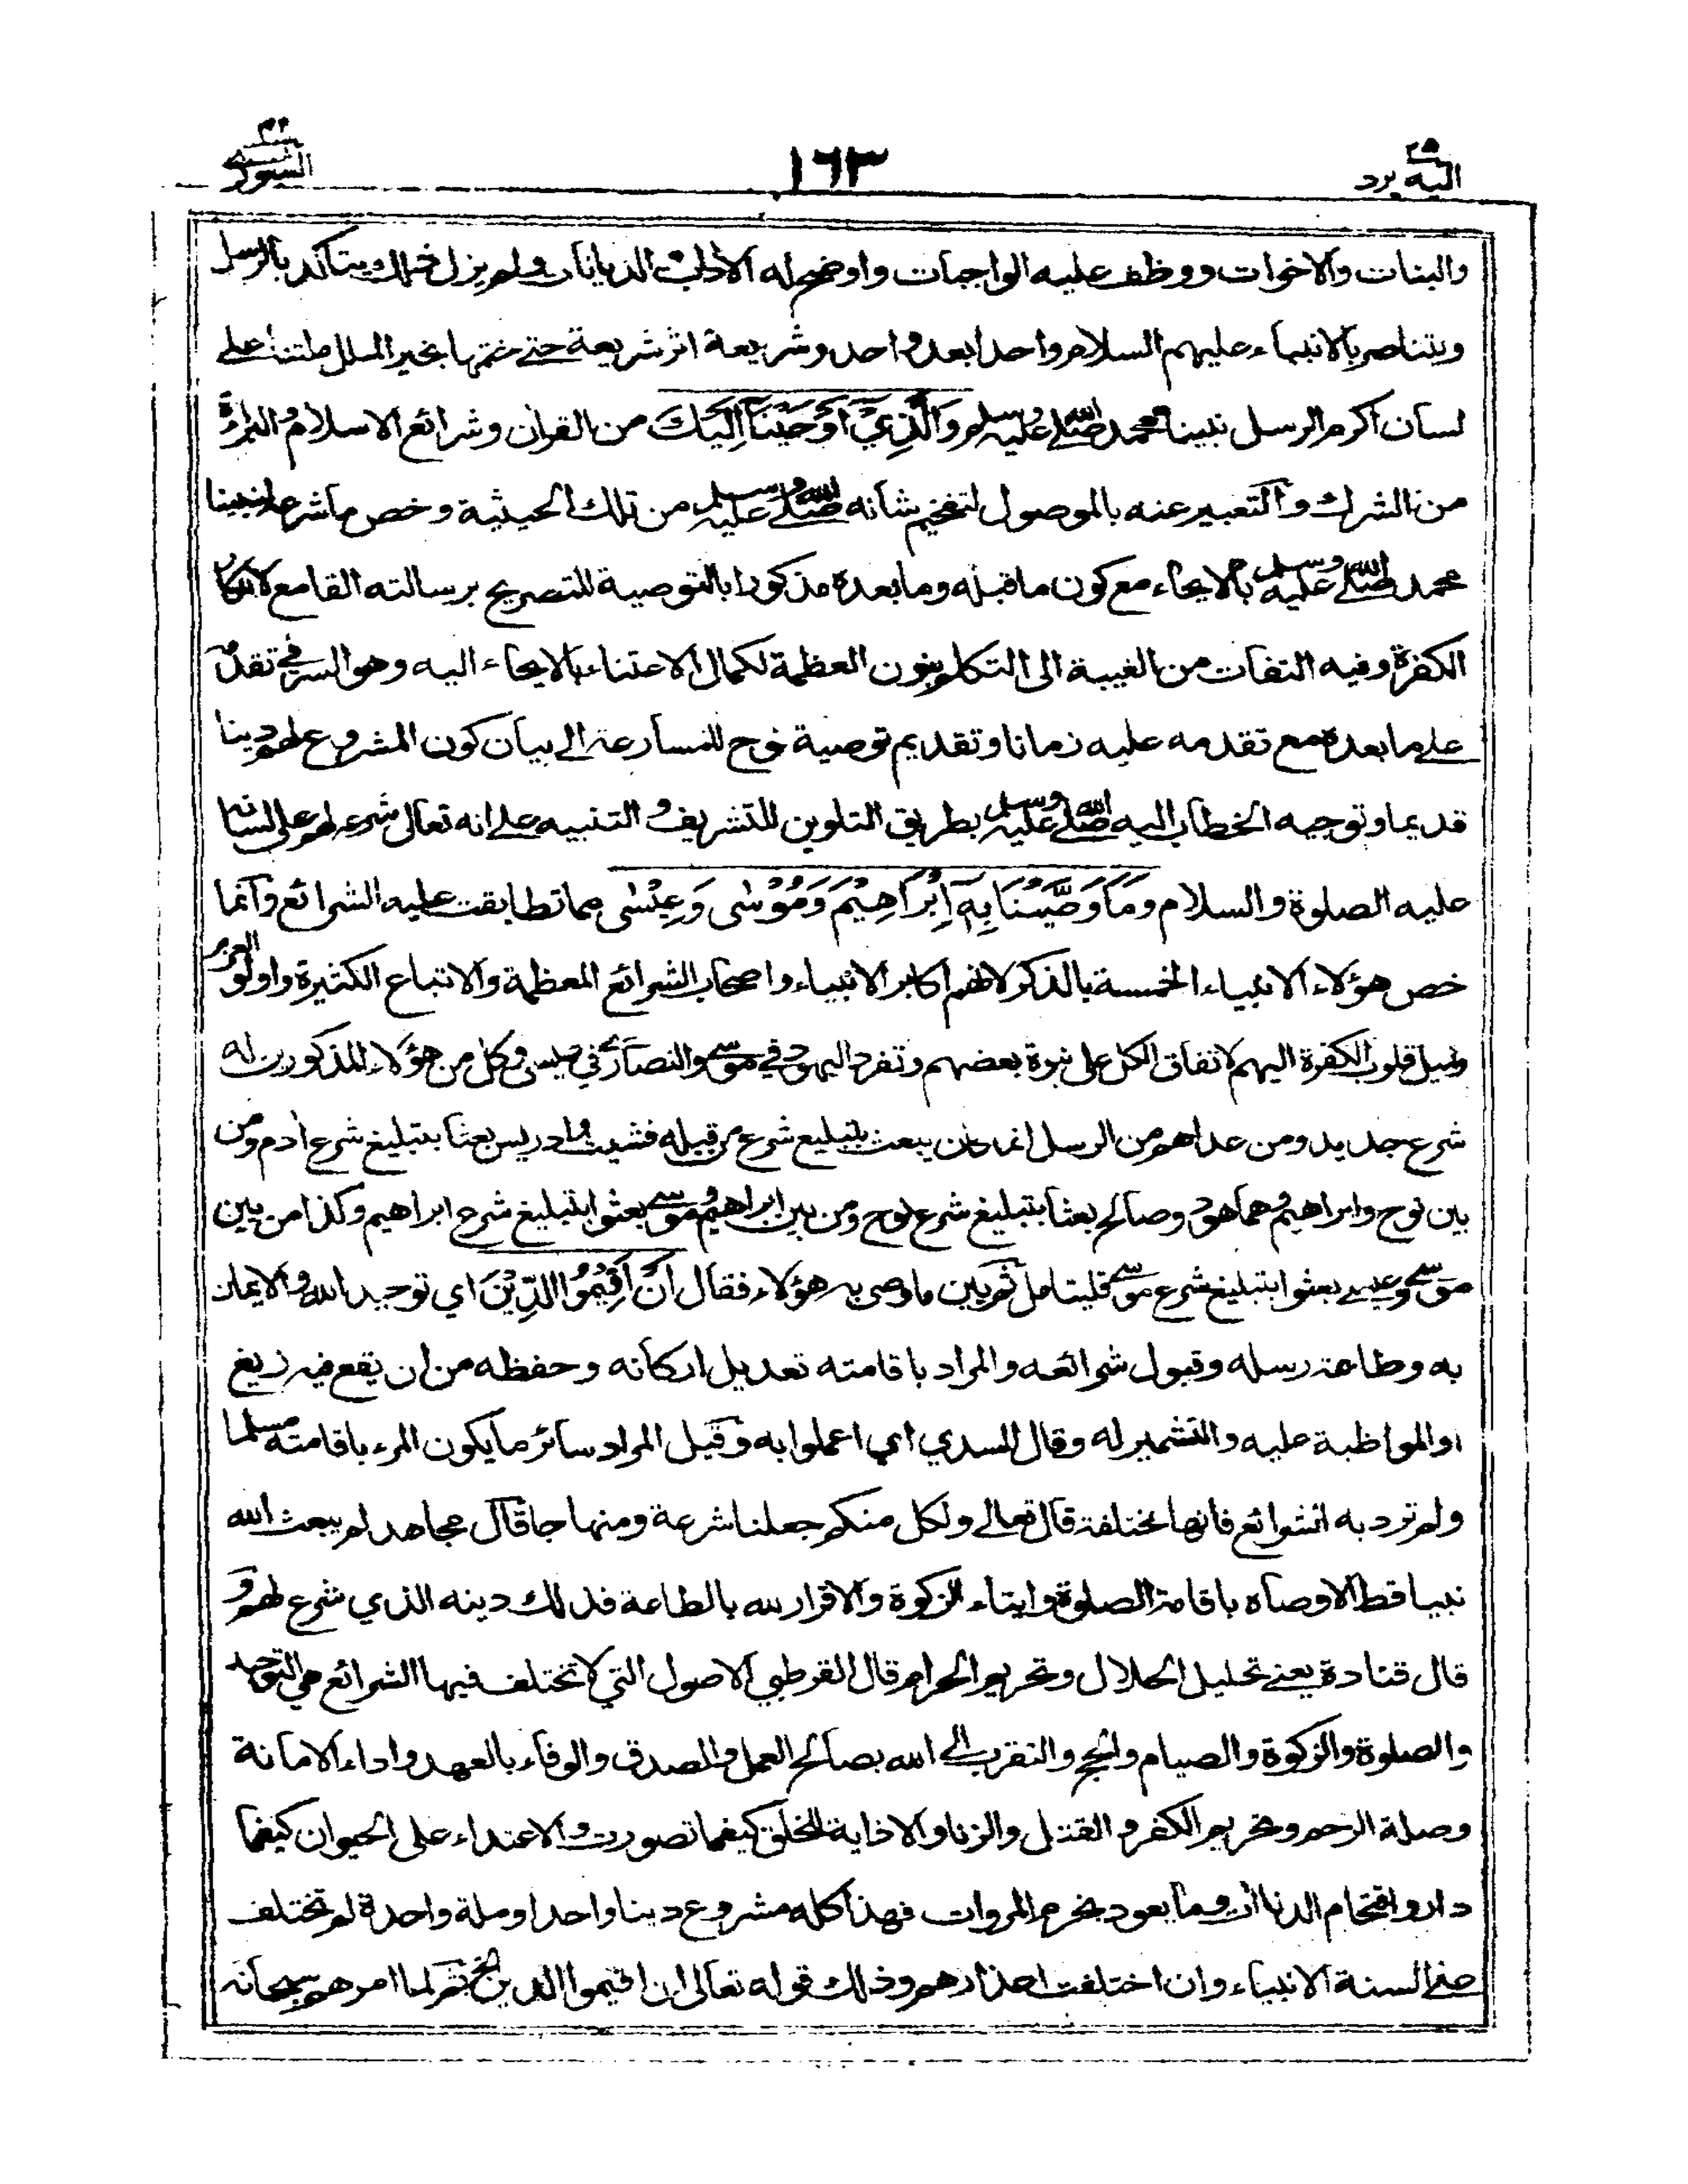 ٢٥ اليه يرد
١٦٣
٤٢ الشورى
والبنات والاخوات ووظف عليه الواجبات واوضح له الأداب في الديانات ولم يزل ذلك ويتأكد بالرسل
ويتناصر بالانبياء عليهم السلام واحدا بعد واحد وشريعة اثر شريعة حتے ختمها بخير الملل ملتنا علے
لسان اكرم الرسل نبينا محمد صلے الله عليه وسلم وَالَّذِيْٓ اَوْحَيْنَآ اِلَيْكَ من القران وشرائع الاسلام والبراءة
من الشرك والتعبير عنه بالموصول لتفخيم شأنه صلے الله عليه وسلم من تلك الحيثية وخص ما شرعه لنبينا
محمد صلے الله عليه وسلم بالايحاء مع كون ما قبله وما بعده مذكورا بالتوصية للتصريح برسالته القامع لانكار
الكفرة وفيه التفات من الغيبة الى التكلم بنون العظمة لكمال الاعتناء بالايحاء اليه وهو السر في تقدمه
علے ما بعده مع تقدمه عليه زمانا وتقديم توصية نوح للمسارعة الے بيان كون المشروع لهم دينا
قديما وتوجيه الخطاب اليه صلے الله عليه وسلم بطريق التلوين للتشريف والتنبيه علے انه تعالى شرعه لهم على لسانه
عليه الصلوة والسلام وَمَا وَصَّيْنَا بِهٖٓ اِبْرَاهِيْمَ وَمُوْسٰى وَعِيْسٰى مما تطابقت عليه الشرائع وانما
خص هؤلاء الانبياء الخمسة بالذكر لانهم اكابر الانبياء واصحاب الشرائع المعظمة والاتباع الكثيرة واولو العزم
وليل قلوب الكفرة اليهم لاتفاق الكل على نبوة بعضهم وتفرد اليهود في موسے والنصارى في عيسى وكل من هؤلاء المذكورين له
شرع جديد ومن عداهم من الرسل انما كان يبعث بتبليغ شرع من قبله فشيث وادريس بعثا بتبليغ شرع ادم ومن
بين نوح وابراهيم وهما هود وصالح بعثا بتبليغ شرع نوح ومن بين ابراهيم وموسے بعثوا بتبليغ شرع ابراهيم وكذا من بين
موسے وعيسے بعثوا بتبليغ شرع موسے فليتامل ثم بين ما وصى به هؤلاء فقال اَنْ اَقِيْمُوا الدِّيْنَ اي توحيد الله والايمان
به وطاعة رسله وقبول شرائعه والمراد باقامته تعديل اركانه وحفظه من ان يقع فيه زيغ
او المواظبة عليه والتشمير له وقال السدي اي اعملوا به وقيل المراد سائر ما يكون المرء باقامته مسلما
ولم ترد به الشرائع فانها مختلفة قال تعالے ولكل منكم جعلنا شرعة ومنهاجا قال مجاهد لم يبعث الله
نبيا قط الا وصاه باقامة الصلوة وايتاء الزكوة والاقرار لله بالطاعة فذلك دينه الذي شرع لهم و
قال قتادة يعنے تحليل الحلال وتحريم الحرام قال القرطبي الاصول التي لا تختلف فيها الشرائع هي التوحيد
والصلوة والزكوة والصيام والحج والتقرب الے الله بصالح العمل والصدق والوفاء بالعهد واداء الامانة
وصلة الرحم وتحريم الكفر والقتل والزنا والاذاية للخلق كيفما تصورت والاعتداء على الحيوان كيفما
دار واقتحام الدناات وما يعود بخرم المروات فهذا كله مشروع دينا واحدا وملة واحدة لم تختلف
علے السنة الانبياء وان اختلفت اعذارهم وذلك قوله تعالى ان اقيموا الدين الخ ثم لما امرهم سبحانه